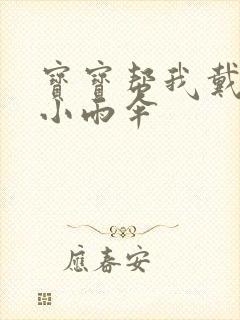 寶寶幫我戴
小雨伞
應春安